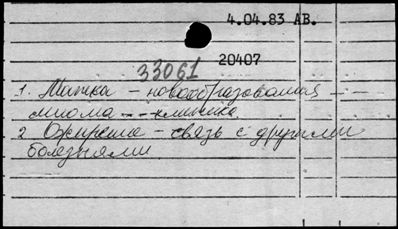 4.04.83 АВ.
20407
33061
1. Матка - новообразования - -
миома - - - клиника.
2 Ожирение - связь с другими
болезнями